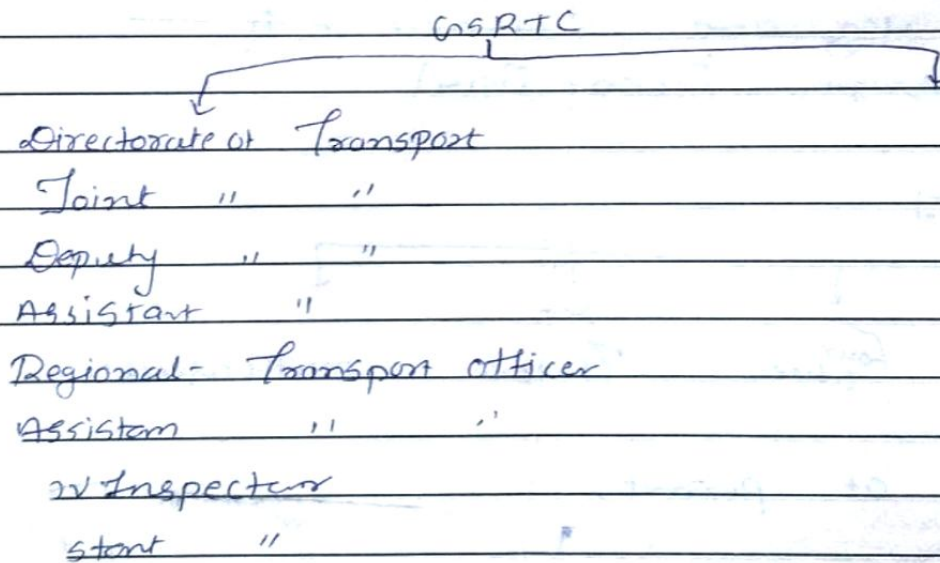 GSRTC
Directorate of Transport
Joint " "
Deputy " "
Assistant "
Regional- Transport officer
Assistam " "
Inspector
stant "